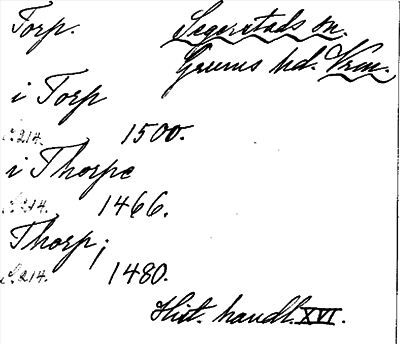 Torp. Segerstads sn.
Grums hd. Vrm.
i Torp
s. 214. 1500.
i Thorpe
s. 214. 1466.
Thorp;
s. 214. 1480.
Hist. handl. XVI.